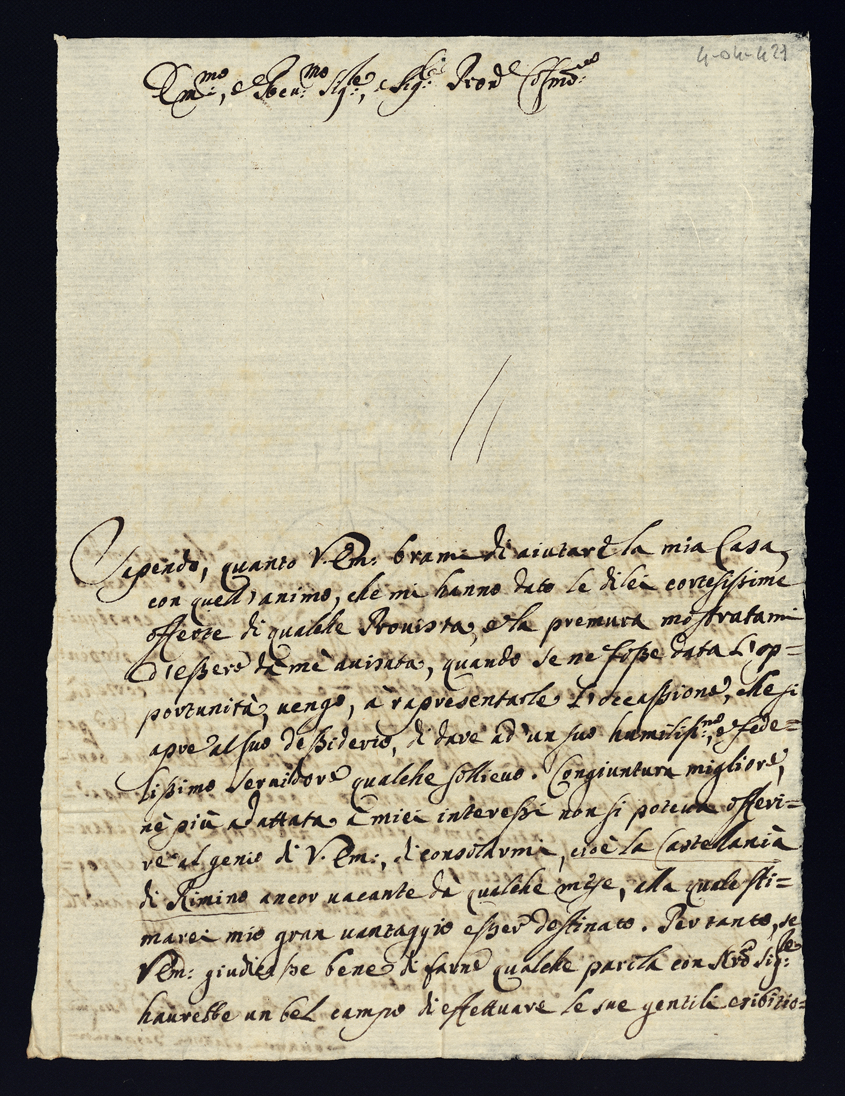 4-04-421
Em:mo, e Reu:mo Sig:re, e Sig:r Pron.e Colmo:
Sapendo, quanto V. Em: brami di aiutare la mia Casa,
con quell'animo, che mi hanno dato le di lei cortesissime
offerte di qualche Prouista, e la premura mostratami
d'essere da me auisata, quando se ne fosse data l'op=
portunità, uengo, à rapresentarle l'occassione, che si
apre al suo dessiderio, di dare ad' un suo humilissi:mo, e fede=
lissimo seruidore qualche sollieuo. Congiuntura migliore,
nè più adattata à miei interessi non si poteua offeri=
re al genio di V. Em:, di consolarmi, cioè la Castellania
di Rimino ancor uacante da qualche mese, alla quale sti=
marei mio gran uantaggio esser destinato. Per tanto, se
V. Em: giudicasse bene di farne qualche parola con Nro Sig:re
haurebbe un bel campo di effettuare le sue gentili esibitio=